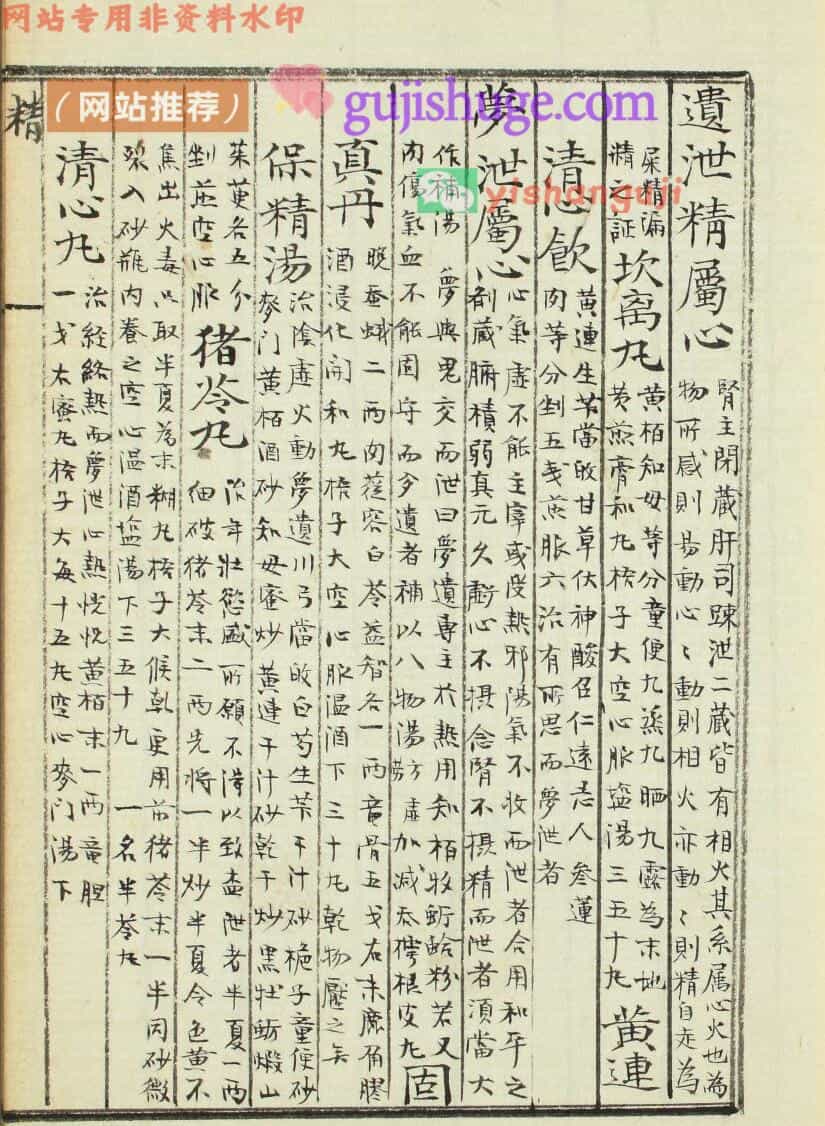 网站专用非资料水印
(网站推荐)
gujishuge.com
yishanguji
遺泄精屬心
腎主閉蔵肝司踈泄二蔵皆有相火其系属心火也為
物所感則易動心〻動則相火亦動〻則精自走為
尿精漏
精之証
坎离丸
黄栢知母等分童便九蒸九晒九露為末地
黄煎膏和丸梧子大空心服盐湯三五十丸
黄連
清心飲
黄連生芐當皈甘草伏神酸召仁遠志人参蓮
肉等分剉五戋煎服六治有所思而夢泄者
夢泄屬心
心氣虚不能主宰或受熱邪陽氣不收而泄者合用和平之
剤蔵腑積弱真元久虧心不摂念腎不摂精而泄者須當大
作補湯夢與鬼交而泄曰夢遺專主於熱用知栢牧蛎蛤粉若又
内傷氣血不能固守而夕遺者補以八物湯加减吞樗根皮丸
固
真丹
晚蚕蛾二两肉蓯容白苓益智各一两竜骨五戈右末鹿角膠
酒浸化開和丸梧子大空心服温酒下三十丸乾物壓之矣
保精湯
治陰虚火動夢遺川弓當皈白芍生芐干汁砂梔子童便砂
麥门黄栢酒砂知母蜜炒黄連干汁砂乾干炒黒牡蛎煅山
茱萸各五分
剉並空心服
猪苓丸
治年壮慾盛所願不淂以致盍泄者半夏一两
細破猪苓末二两先將一半炒半夏令色黄不
焦出火毒以取半夏為末糊丸梧子大候乾更用前猪苓末一半同砂微
裂入砂瓶内養之空心温酒盐湯下三五十九一名半苓丸
清心丸
治経絡熱而夢泄心熱恍惚黄栢末一两竜胆
一戈右蜜丸梧子大每十五丸空心麥门湯下
精